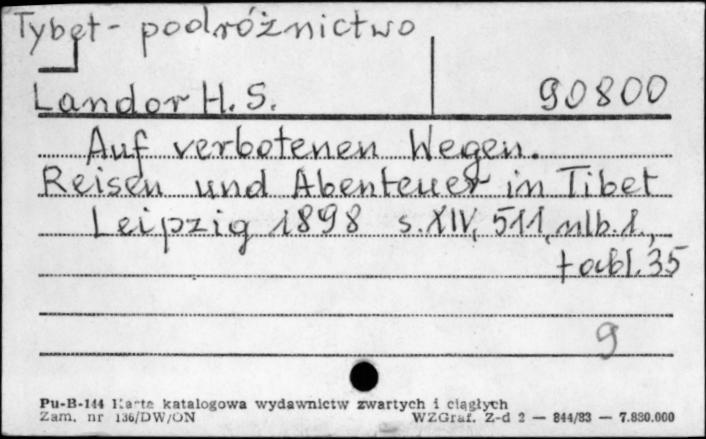 Tybet - podróżnictwo
Landor H. S. 90800
Auf verbotenen Wegen.
Reisen und Abenteuer in Tibet
Leipzig 1898 s. XIV, 511, mlb. 1.,
tabl. 35
9
Pu-B-144 Karta katalogowa wydawnictw zwartych i ciągłych
Zam. nr 136/DW/ON WZGraf. Z-d 2 — 844/83 — 7.830.000